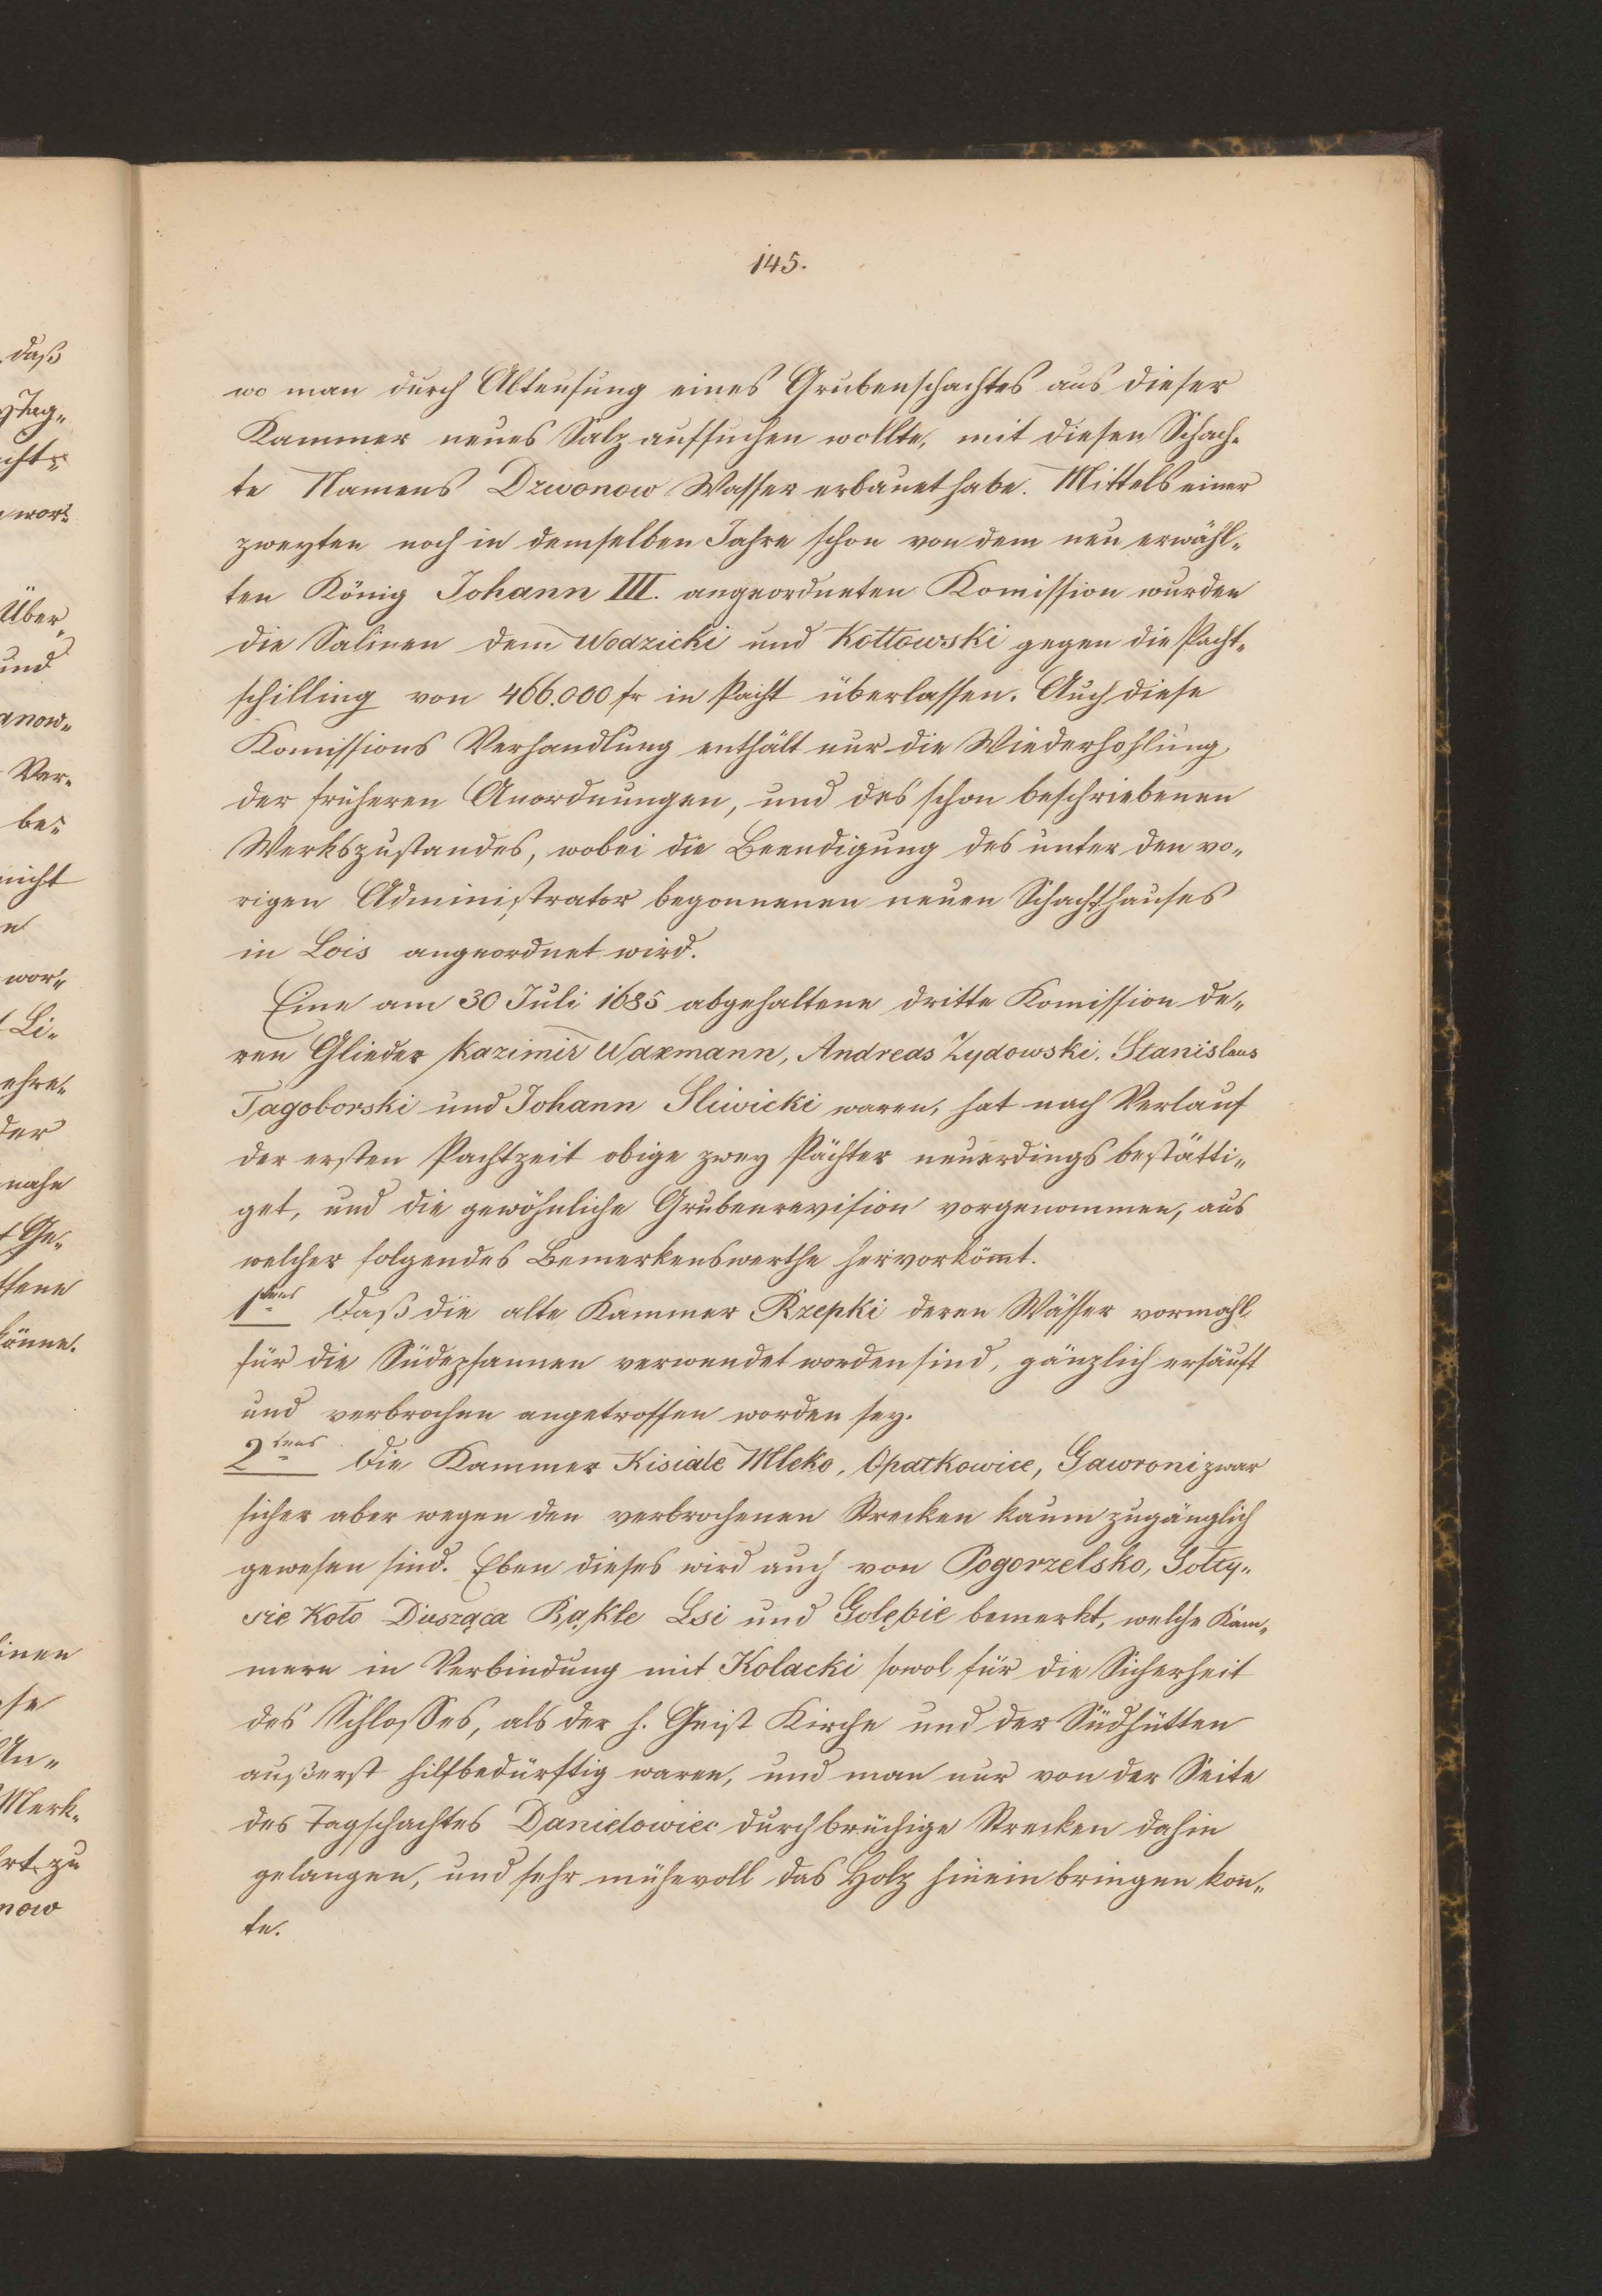 145.
wo man durch Abteufung eines Grubenschachtes aus dieser
Kammer neues Salz aufsuchen wollte, mit diesen Schach-
te Namens Dzwonow Wasser erbauet habe. Mittels einer
zweyten noch in demselben Jahre schon von dem neu erwähl-
ten König Johann III. angeordneten Komission wurden
die Salinen dem Wodzicki und Kottowski gegen die Pacht-
schilling von 466.000 fr in Pacht überlassen. Auch diese
Komissions Verhandlung enthält nur die Wiederhohlung
der früheren Anordnungen, und des schon beschriebenen
Werkszustandes, wobei die Beendigung des unter den vo-
rigen Administrator begonnenen neuen Schachthauses
in Lois angeordnet wird.
Eine am 30 Juli 1685 abgehaltene dritte Komission de-
ren Glieder Kazimir Waxmann, Andreas Zydowski, Stanislaus
Tagoborski und Johann Sliwicki waren, hat nach Verlauf
der ersten Pachtzeit obige zwey Pächter neuerdings bestätti-
get, und die gewöhnliche Grubenrevision vorgenommen, aus
welcher folgendes Bemerkenswerthe hervorkömt.
1tens Daß die alte Kammer Rzepki deren Wässer vormahl
für die Südepfannen verwendet worden sind, gänzlich ersäuft
und verbrochen angetroffen worden sey.
2tens Die Kammer Kisiale Mleko, Opatkowice, Gawroni zwar
sicher aber wegen den verbrochenen Strecken kaum zugänglich
gewesen sind. Eben dieses wird auch von Pogorzelsko, Solty-
sie Koło Dusząca Rąkle Lsi und Golębie bemerkt, welche Kam-
mern in Verbindung mit Kolacki sowol für die Sicherheit
des Schlosses, als der h. Geist Kirche und der Südhütten
außerst hilfbedürftig waren, und man nur von der Seite
des Tagschachtes Danielowiec durch brüchige Strecken dahin
gelangen, und sehr mühevoll das Holz hinein bringen kon-
te.